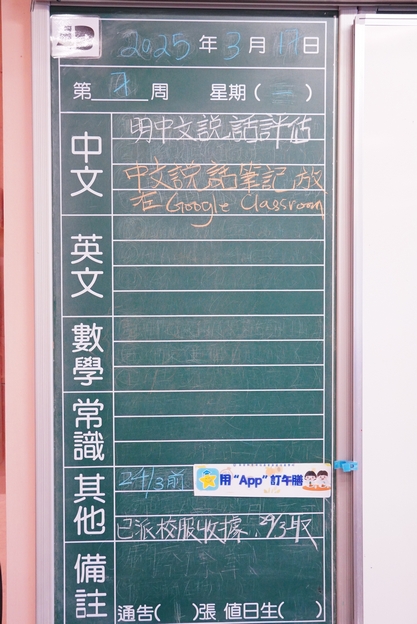 2025 年 3 月 日
第 周 星期( )
中文
明中文說話評估
中文說話筆記 放
在 Google Classroom
英文
數學
常識
其他
24/3前
用“App”訂午膳
已派校服收據
備註
通告( )張 值日生( )